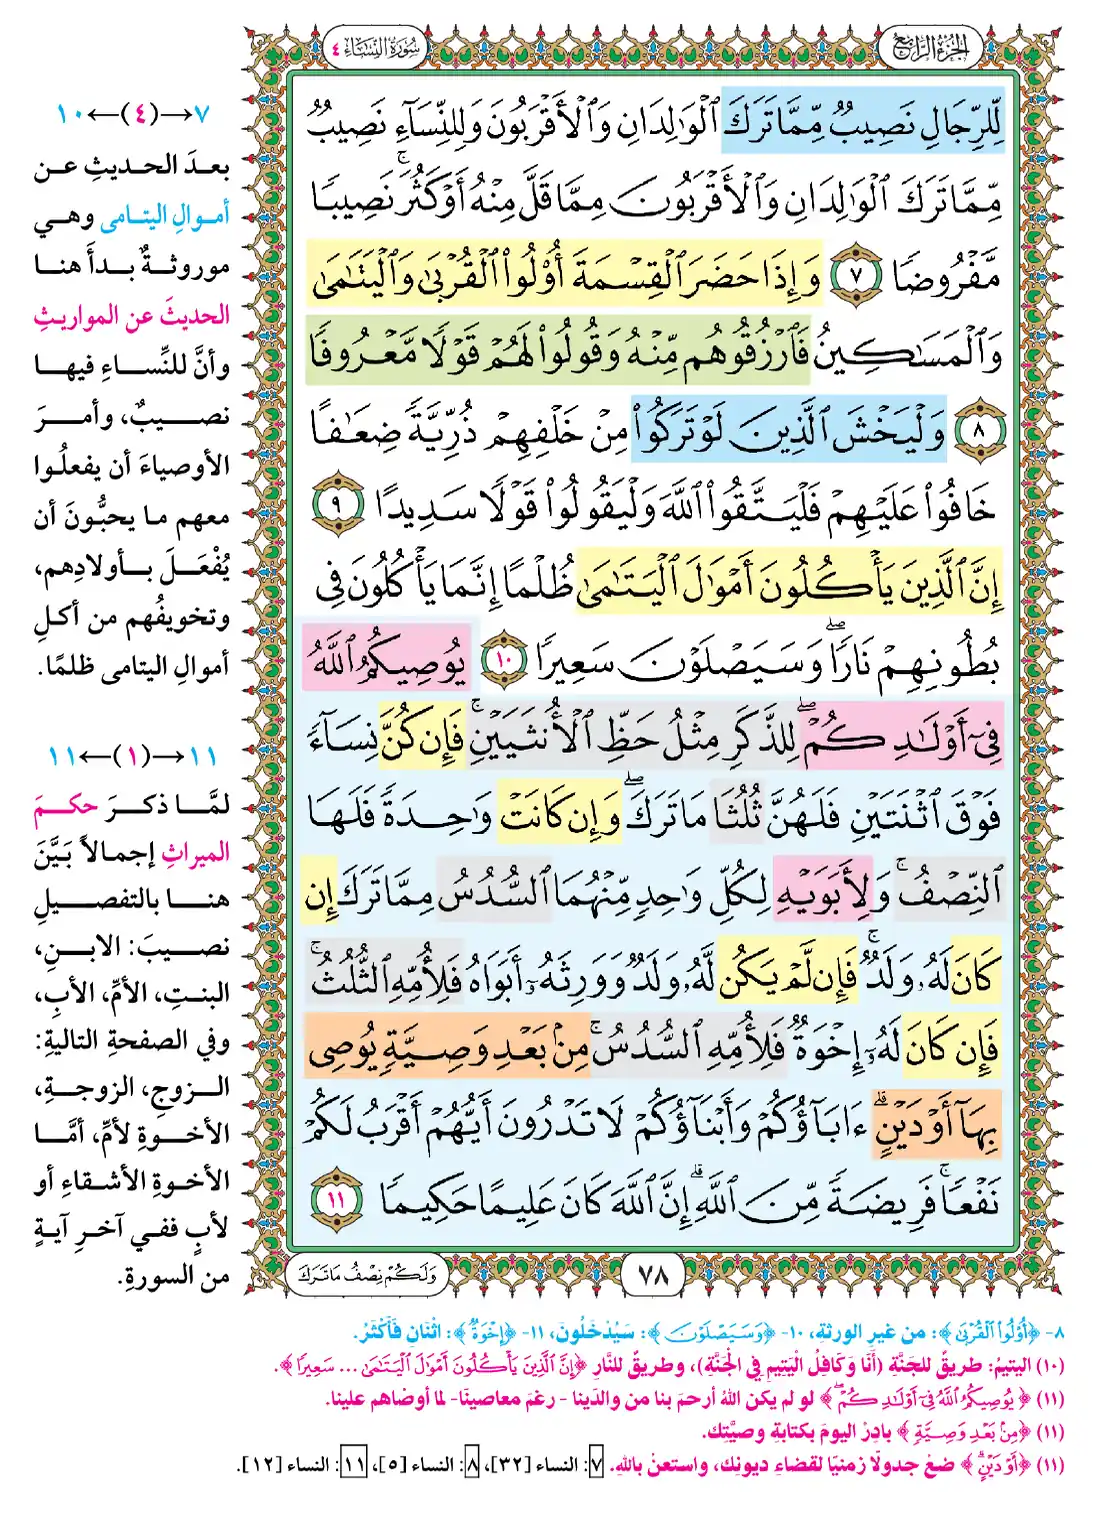 الجزء الرابع
سورة النساء ٤
لِّلرِّجَالِ نَصِيبٌ مِّمَّا تَرَكَ ٱلْوَٰلِدَانِ وَٱلْأَقْرَبُونَ وَلِلنِّسَآءِ نَصِيبٌ
مِّمَّا تَرَكَ ٱلْوَٰلِدَانِ وَٱلْأَقْرَبُونَ مِمَّا قَلَّ مِنْهُ أَوْ كَثُرَ ۚ نَصِيبًا
مَّفْرُوضًا ٧ وَإِذَا حَضَرَ ٱلْقِسْمَةَ أُو۟لُوا۟ ٱلْقُرْبَىٰ وَٱلْيَتَٰمَىٰ
وَٱلْمَسَٰكِينُ فَٱرْزُقُوهُم مِّنْهُ وَقُولُوا۟ لَهُمْ قَوْلًا مَّعْرُوفًا
٨ وَلْيَخْشَ ٱلَّذِينَ لَوْ تَرَكُوا۟ مِنْ خَلْفِهِمْ ذُرِّيَّةً ضِعَٰفًا
خَافُوا۟ عَلَيْهِمْ فَلْيَتَّقُوا۟ ٱللَّهَ وَلْيَقُولُوا۟ قَوْلًا سَدِيدًا ٩
إِنَّ ٱلَّذِينَ يَأْكُلُونَ أَمْوَٰلَ ٱلْيَتَٰمَىٰ ظُلْمًا إِنَّمَا يَأْكُلُونَ فِى
بُطُونِهِمْ نَارًا ۖ وَسَيَصْلَوْنَ سَعِيرًا ١٠ يُوصِيكُمُ ٱللَّهُ
فِىٓ أَوْلَٰدِكُمْ ۖ لِلذَّكَرِ مِثْلُ حَظِّ ٱلْأُنثَيَيْنِ ۚ فَإِن كُنَّ نِسَآءً
فَوْقَ ٱثْنَتَيْنِ فَلَهُنَّ ثُلُثَا مَا تَرَكَ ۖ وَإِن كَانَتْ وَٰحِدَةً فَلَهَا
ٱلنِّصْفُ ۚ وَلِأَبَوَيْهِ لِكُلِّ وَٰحِدٍ مِّنْهُمَا ٱلسُّدُسُ مِمَّا تَرَكَ إِن
كَانَ لَهُۥ وَلَدٌ ۚ فَإِن لَّمْ يَكُن لَّهُۥ وَلَدٌ وَوَرِثَهُۥٓ أَبَوَاهُ فَلِأُمِّهِ ٱلثُّلُثُ ۚ
فَإِن كَانَ لَهُۥٓ إِخْوَةٌ فَلِأُمِّهِ ٱلسُّدُسُ ۚ مِنۢ بَعْدِ وَصِيَّةٍ يُوصِى
بِهَآ أَوْ دَيْنٍ ۗ ءَابَآؤُكُمْ وَأَبْنَآؤُكُمْ لَا تَدْرُونَ أَيُّهُمْ أَقْرَبُ لَكُمْ
نَفْعًا ۚ فَرِيضَةً مِّنَ ٱللَّهِ ۗ إِنَّ ٱللَّهَ كَانَ عَلِيمًا حَكِيمًا ١١
٧٨
وَلَكُمْ نِصْفُ مَا تَرَكَ
٧→(٤)←١٠
بعدَ الحديثِ عن
أموالِ اليتامى وهي
موروثةٌ بدأَ هنا
الحديثَ عن المواريثِ
وأنَّ للنِّساءِ فيها
نصيبٌ، وأمرَ
الأوصياءَ أن يفعلُوا
معهم ما يحبُّونَ أن
يُفْعَلَ بأولادِهم،
وتخويفُهم من أكلِ
أموالِ اليتامى ظلمًا.
١١→(١)←١١
لمَّا ذكرَ حكمَ
الميراثِ إجمالاً بَيَّنَ
هنا بالتفصيلِ
نصيبَ: الابنِ،
البنتِ، الأمِّ، الأبِ،
وفي الصفحةِ التاليةِ:
الزوجِ، الزوجةِ،
الأخوةِ لأمِّ، أمَّا
الأخوةِ الأشقاءِ أو
لأبٍ ففي آخرِ آيةٍ
من السورةِ.
٨- ﴿أُوْلُوا الْقُرْبَى﴾: من غيرِ الورثةِ، ١٠- ﴿وَسَيَصْلَوْنَ﴾: سَيُدْخَلُونَ، ١١- ﴿إِخْوَةٌ﴾: اثْنَانِ فَأَكْثَرُ.
(١٠) اليتيمُ: طريقٌ للجَنَّةِ (أَنَا وَكَافِلُ الْيَتِيمِ فِي الْجَنَّةِ)، وطريقٌ للنَّارِ ﴿إِنَّ الَّذِينَ يَأْكُلُونَ أَمْوَالَ الْيَتَامَى ... سَعِيرًا﴾.
(١١) ﴿يُوصِيكُمُ اللَّهُ فِي أَوْلَادِكُمْ﴾ لو لم يكن اللهُ أرحمَ بنا من والدَينا - رغمَ معاصينَا- لما أوصَاهم علينا.
(١١) ﴿مِنْ بَعْدِ وَصِيَّةٍ﴾ بادِرْ اليومَ بكتابةِ وصيَّتِك.
(١١) ﴿أَوْ دَيْنٍ﴾ ضعْ جدولًا زمنيًا لقضاءِ ديونِك، واستعنْ باللهِ. ٧: النساء [٣٢]، ٨: النساء [٥]، ١١: النساء [١٢].